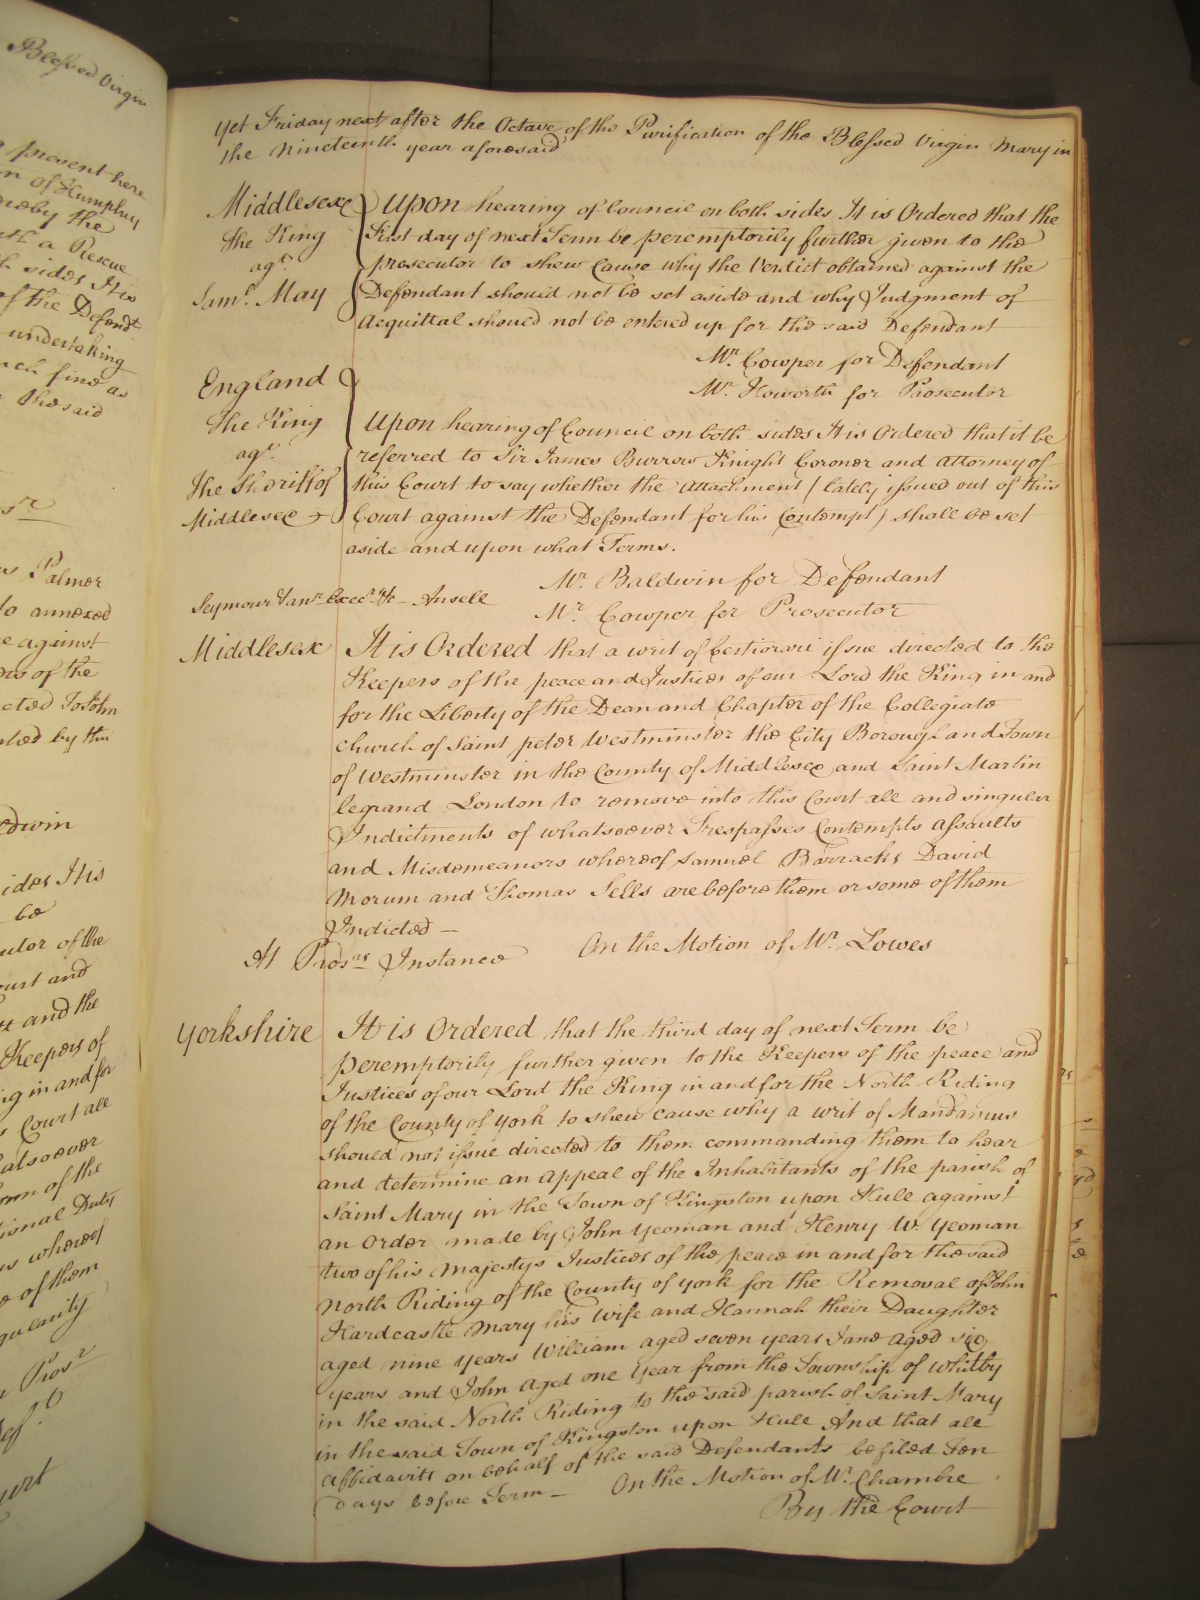 Blessed Virgin
present here
n of Humphry
reby the
with a Rescue
sides It is
of the Defend.t
undertaking
such fine as
the said
Palmer
to annexed
e against
ers of the
cted To John
nted by this
ldwin
ides It is
be
utor of the
ourt and
and the
Keepers of
g in and for
Court all
atsoever
orm of the
ional Duty
s whereof
e of them
gularity
Pros.r
yet Friday next after the Octave of the Purification of the Blessed Virgin Mary in
the Nineteenth year aforesaid
Middlesex
The King
ag.t
Sam.l May
Upon hearing of Council on both sides It is Ordered that the
First day of next Term be peremptorily further given to the
prosecutor to shew Cause why the Verdict obtained against the
Defendant should not be set aside and why Judgment of
Acquittal should not be entered up for the said Defendant
Mr. Cowper for Defendant
Mr. Howorth for Prosecutor
England
The King
ag.t
The Sheriff of
Middlesex
Upon hearing of Council on both sides It is Ordered that it be
referred to Sir James Burrow Knight Coroner and Attorney of
this Court to say whether the Attachment (lately issued out of this
Court against the Defendant for his Contempt) shall be set
aside and upon what Terms.
Mr. Baldwin for Defendant
Seymour & an.r Exec.rs &c - Ansell
Mr. Cowper for Prosecutor
Middlesex It is Ordered that a writ of Certiorari issue directed to the
Keepers of the peace and Justices of our Lord the King in and
for the Liberty of the Dean and Chapter of the Collegiate
Church of Saint peter Westminster the City Borough and Town
of Westminster in the County of Middlesex and Saint Martin
legrand London to remove into this Court all and singular
Indictments of whatsoever Trespasses Contempts Assaults
and Misdemeanors whereof Samuel Barracks David
Morum and Thomas Sells are before them or some of them
Indicted —
At Pros.rs Instance On the Motion of Mr. Lowes
Yorkshire It is Ordered that the third day of next Term be
peremptorily further given to the Keepers of the peace and
Justices of our Lord the King in and for the North Riding
of the County of York to shew cause why a writ of Mandamus
should not issue directed to them commanding them to hear
and determine an Appeal of the Inhabitants of the parish of
Saint Mary in the Town of Kingston upon Hull against
an Order made by John Yeoman and Henry W. Yeoman
two of his Majestys Justices of the peace in and for the said
North Riding of the County of York for the Removal of John
Hardcastle Mary his Wife and Hannah their Daughter
aged nine years William aged seven years Jane aged six
years and John aged one year from the Township of Whitby
in the said North Riding to the said parish of Saint Mary
in the said Town of Kingston upon Hull And that all
Affidavits on behalf of the said Defendants be filed Ten
days before Term — On the Motion of Mr. Chambre
By the Court